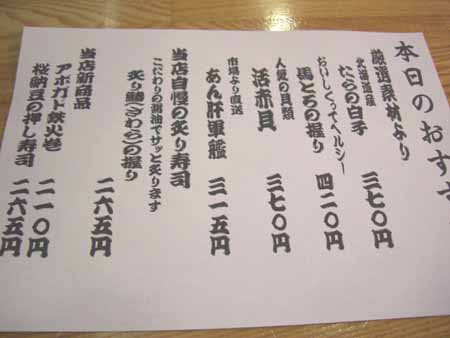 本日のおす
厳選素材より
北海道産
たらの白子 三七〇円
おいしくってヘルシー
馬とろの握り 四二〇円
人気の貝類
活赤貝 三七〇円
市場より直送
あん肝軍艦 三一五円
当店自慢の炙り寿司
こだわりの醤油でサッと炙ります
炙り鰆(さわら)の握り 二六五円
当店新商品
アボガド鉄火巻 二一〇円
桜納豆の押し寿司 二六五円